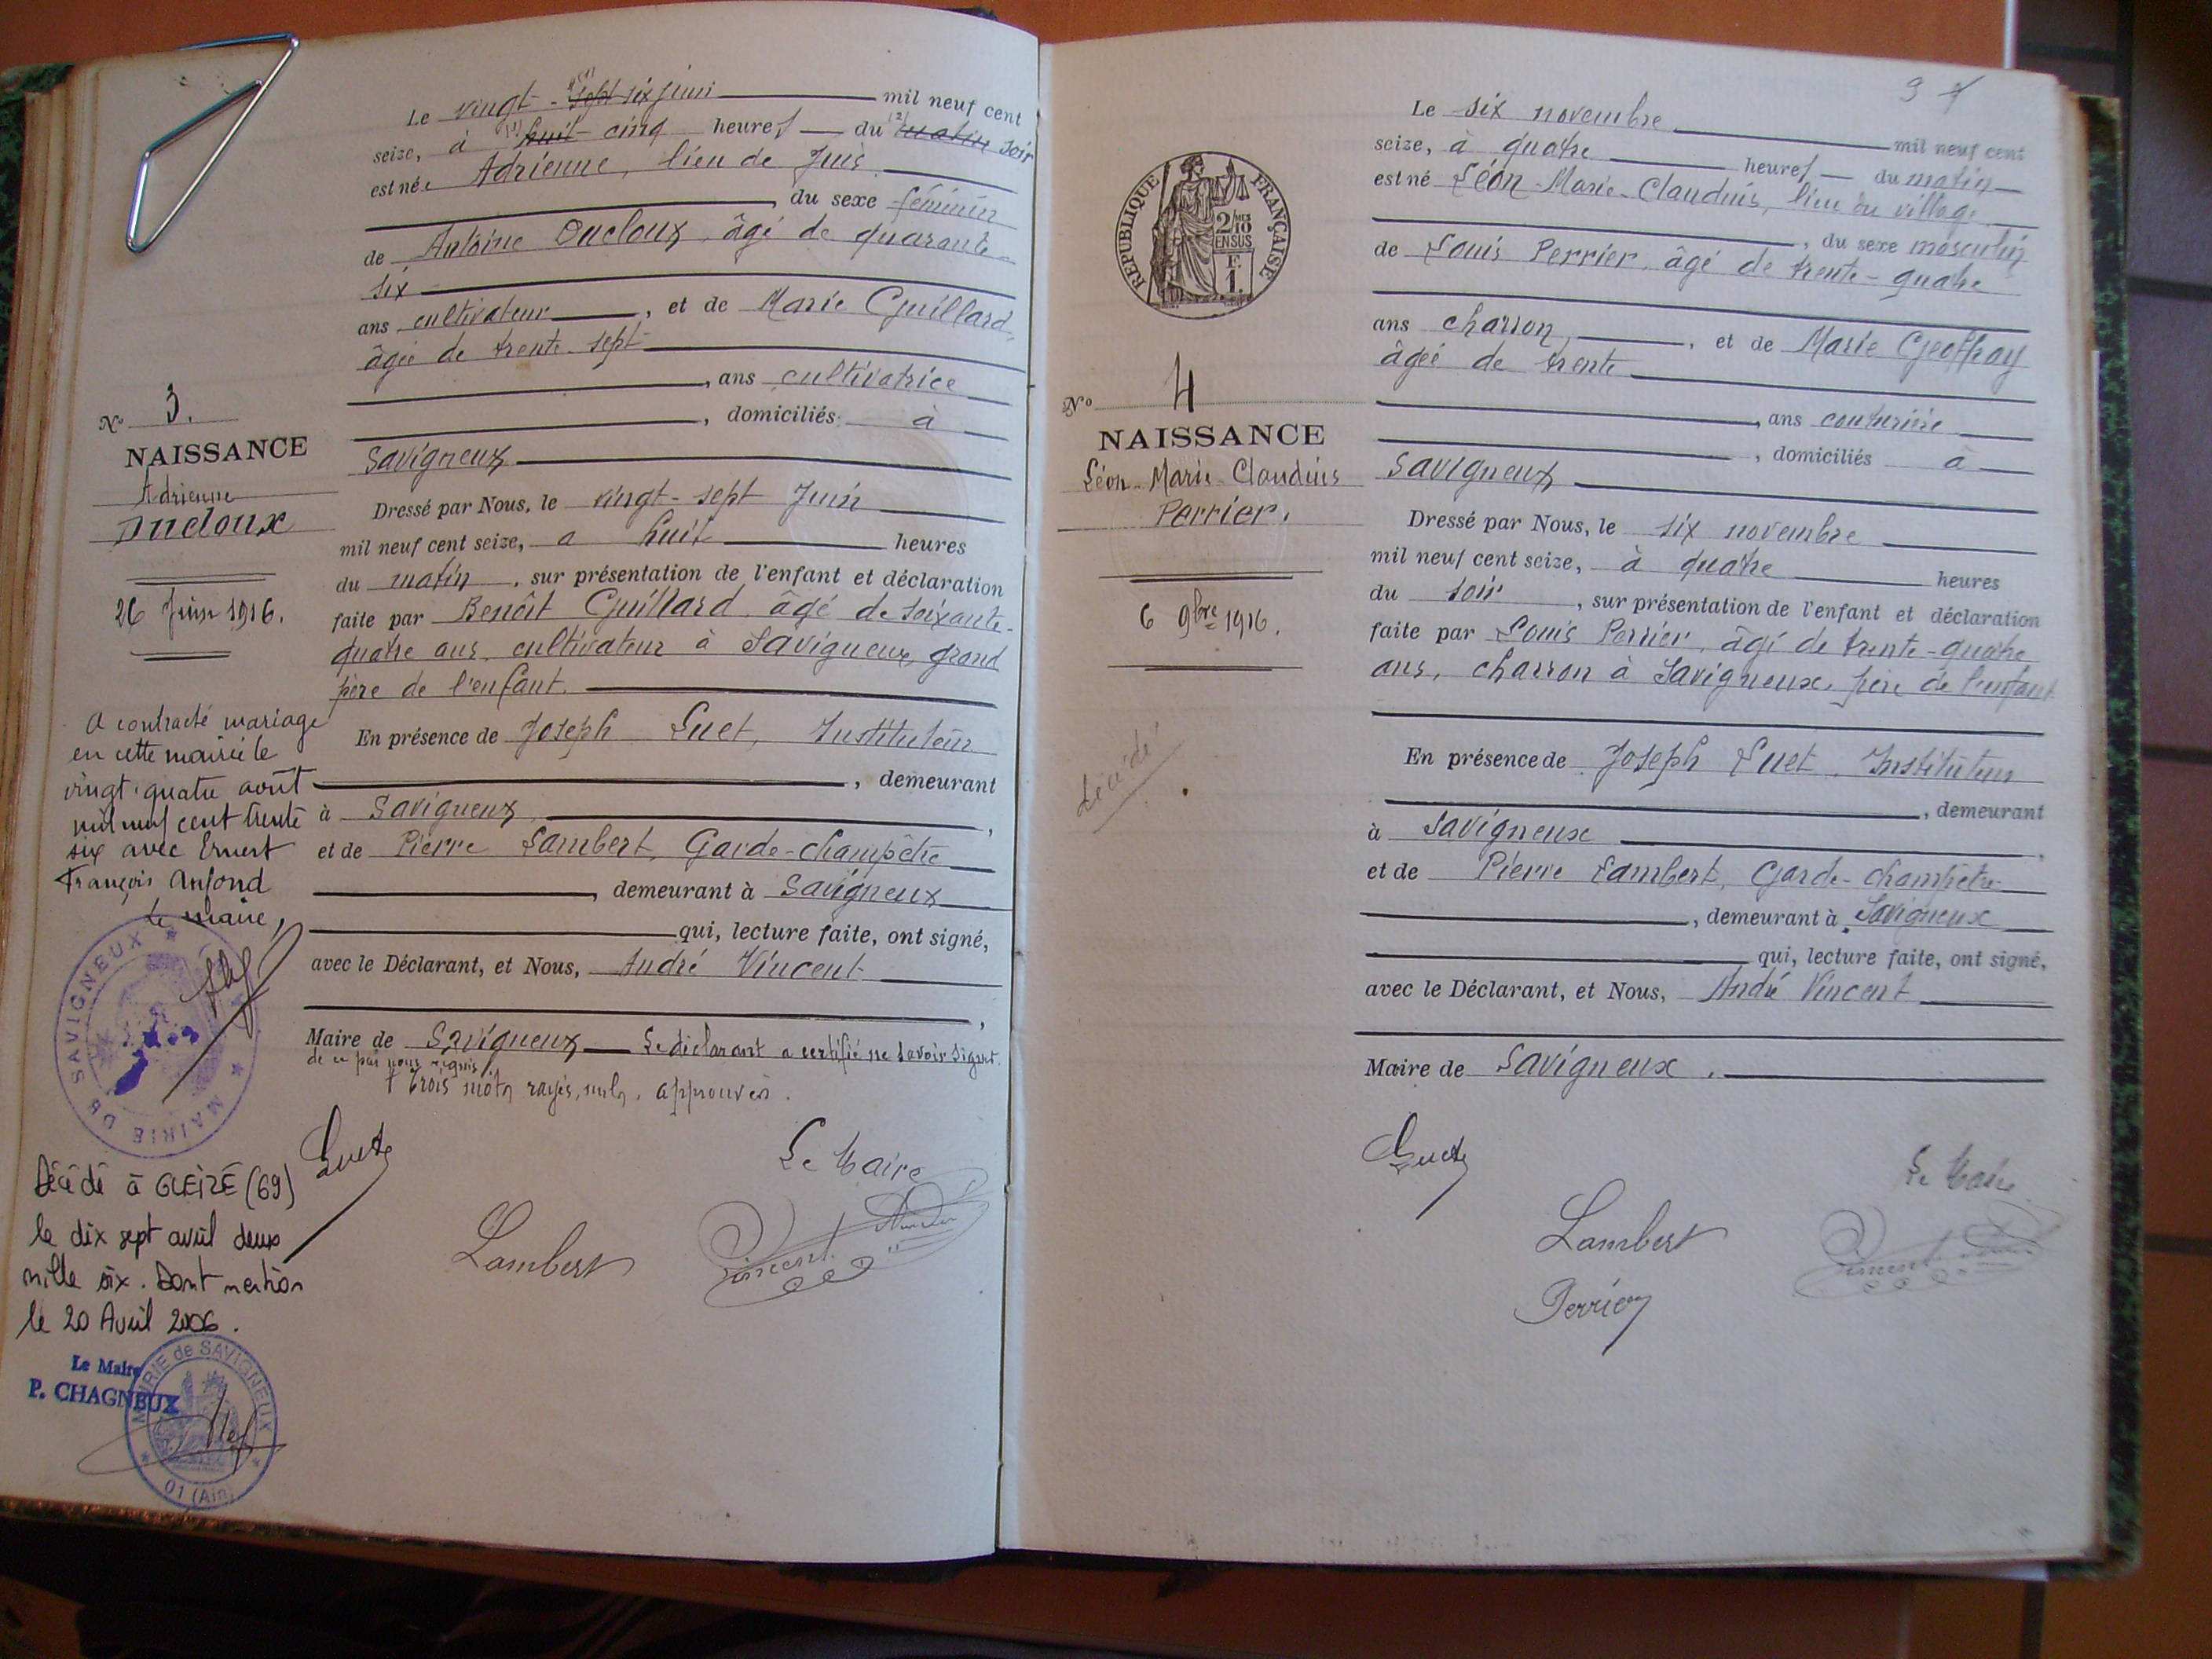 Le vingt-sept six juin mil neuf cent
seize, à (1) huit cinq heures du (2) matin soir
est née Adrienne, lieu de Juis
, du sexe féminin
de Antoine Ducloux, âgé de quarante-
six
ans cultivateur, et de Marie Guillard,
âgée de trente-sept
, ans cultivatrice
, domiciliés à
Savigneux
Dressé par Nous, le vingt-sept Juin
mil neuf cent seize, à huit heures
du matin, sur présentation de l'enfant et déclaration
faite par Benoît Guillard, âgé de soixante-
quatre ans, cultivateur à Savigneux, grand
père de l'enfant.
En présence de Joseph Luet, Instituteur
, demeurant
à Savigneux,
et de Pierre Lambert, Garde-champêtre
, demeurant à Savigneux
qui, lecture faite, ont signé,
avec le Déclarant, et Nous, André Vincent
,
Maire de Savigneux Le déclarant a certifié ne savoir signer.
de ce par nous requis.
trois mots rayés, nuls, approuvés.
Luet
Le Maire
Lambert
Vincent André
No 3.
NAISSANCE
Adrienne
Ducloux
26 Juin 1916.
A contracté mariage
en cette mairie le
vingt-quatre août
mil neuf cent trente
six avec Ernest
François
Le maire,
MAIRIE DE SAVIGNEUX
Décédé à GLEIZÉ (69)
le dix sept avril deux
mille six. Dont mention
le 20 Avril 2006.
Le Maire
P. CHAGNEUX
MAIRIE de SAVIGNEUX
01 (Ain)
9
Le six novembre mil neuf cent
seize, à quatre heures du matin
est né Léon-Marie-Claudius, lieu du village
, du sexe masculin
de Louis Perrier, âgé de trente-quatre
ans charron, et de Marie Geoffray
âgée de trente
, ans couturière
, domiciliés à
Savigneux
Dressé par Nous, le six novembre
mil neuf cent seize, à quatre heures
du soir, sur présentation de l'enfant et déclaration
faite par Louis Perrier, âgé de trente-quatre
ans, charron à Savigneux, père de l'enfant
En présence de Joseph Luet, Instituteur
, demeurant
à Savigneux
et de Pierre Lambert, Garde-champêtre
, demeurant à Savigneux
qui, lecture faite, ont signé,
avec le Déclarant, et Nous, André Vincent
Maire de Savigneux.
Luet
Le Maire
Lambert
Vincent
Perrier
RÉPUBLIQUE FRANÇAISE
2/10 MES
EN SUS
F.
1.
No 4
NAISSANCE
Léon-Marie-Claudius
Perrier.
6 9bre 1916.
Décédé